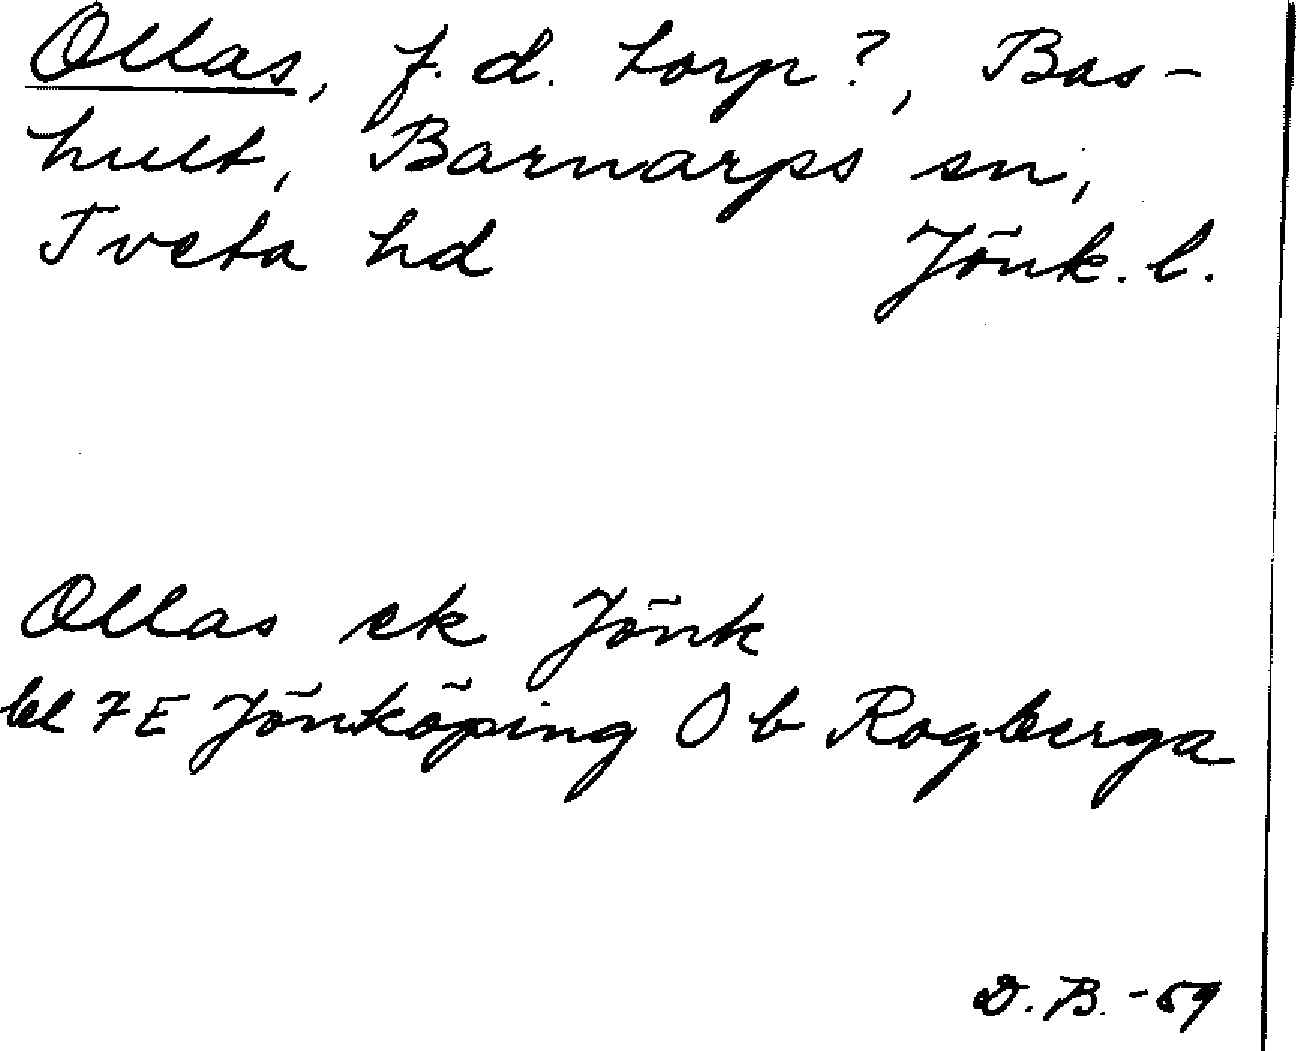 Ollas, f.d. torp?, Bas-
hult, Barnarps sn,
Tveta hd Jönk. l.
Ollas ek Jönk
bl 7E Jönköping Ob Rogberga
D.B. -59